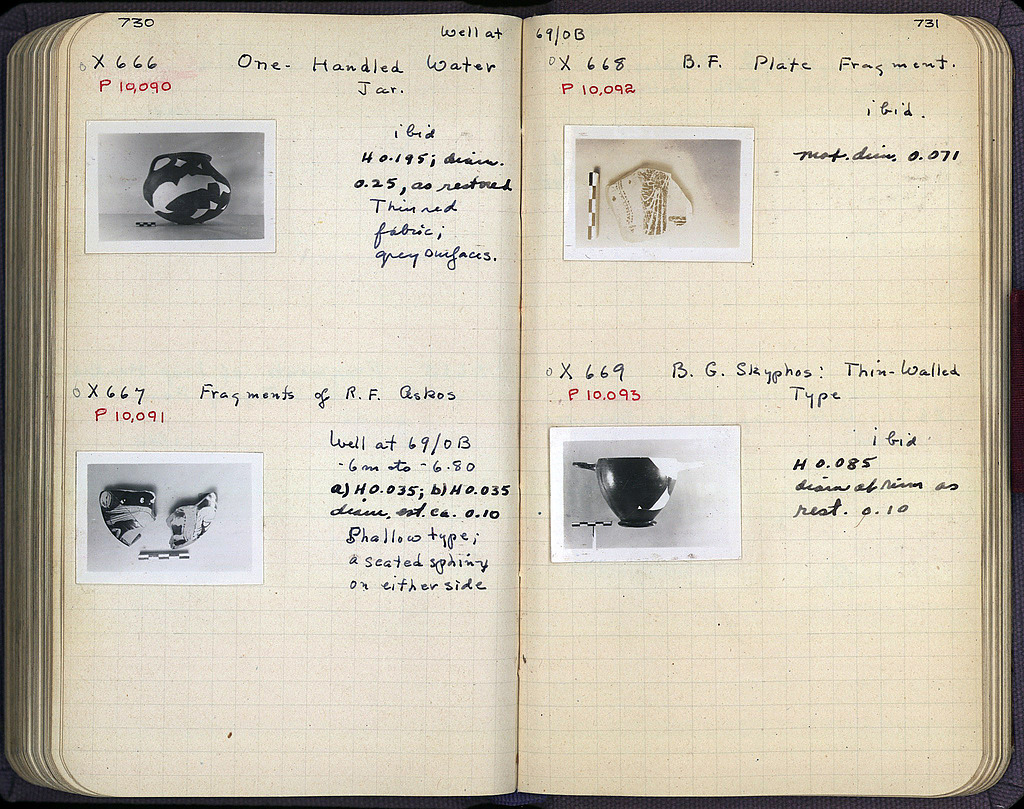 730
Well at
X 666 One-Handled Water
P 10,090 Jar.
ibid
H 0.195; diam.
0.25, as restored
Thin red
fabric;
grey surfaces.
X 667 Fragments of R.F. askos
P 10,091
Well at 69/OB
-6m to -6.80
a) H 0.035; b) H 0.035
diam. est. ca. 0.10
Shallow type;
a seated sphinx
on either side
731
69/OB
X 668 B.F. Plate Fragment.
P 10,092
ibid.
max. dim. 0.071
X 669 B.G. Skyphos: Thin-Walled
P 10,093 Type
ibid
H 0.085
diam at rim as
rest. 0.10